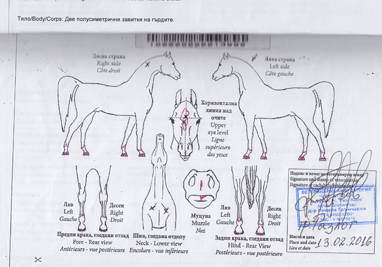 Тяло/Body/Corps: Две полусиметрични завитки на гърдите.
Дясна страна
Right side
Côte droit
Лява страна
Left side
Côte gauche
Хоризонтална
линия над
очите
Upper
eye level
Ligne
supérieure
des yeux
Ляв
Left
Gauche
Десен
Right
Droit
Предни крака, гледани отзад
Fore - Rear view
Antérieurs - vue postérieure
Шия, гледана отдолу
Neck - Lower view
Encolure - vue inférieure
Муцуна
Muzzle
Nez
Ляв
Left
Gauche
Десен
Right
Droit
Задни крака, гледани отзад
Hind - Rear view
Postérieurs - vue postérieure
Място и дата
Place and date
Lieu et date
13.02.2016